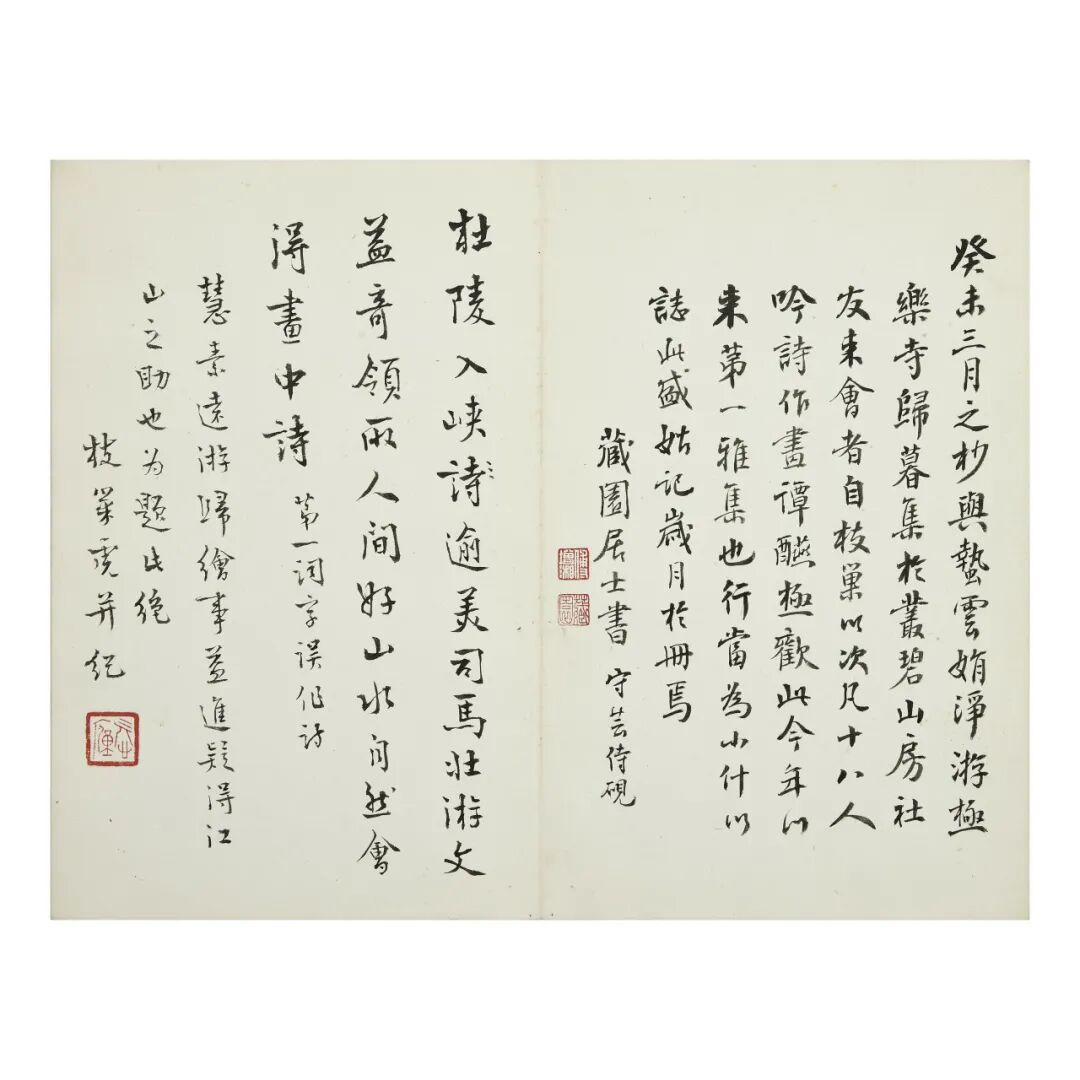 癸未三月之杪與蟄雲娟淨游極
樂寺歸暮集於叢碧山房社
友来會者自枝巢以次凡十八人
吟詩作畫譚醼極歡此今年以
来第一雅集也行當為小什以
誌此盛姑記歲月於冊焉
藏園居士書 守芸侍硯
杜陵入峽詩逾美司馬壯游文
益奇領取人間好山水自然會
得畫中詩 第一詞字誤作詩
慧素遠游歸繪事益進疑得江
山之助也為題此絶
枝巢虎并紀